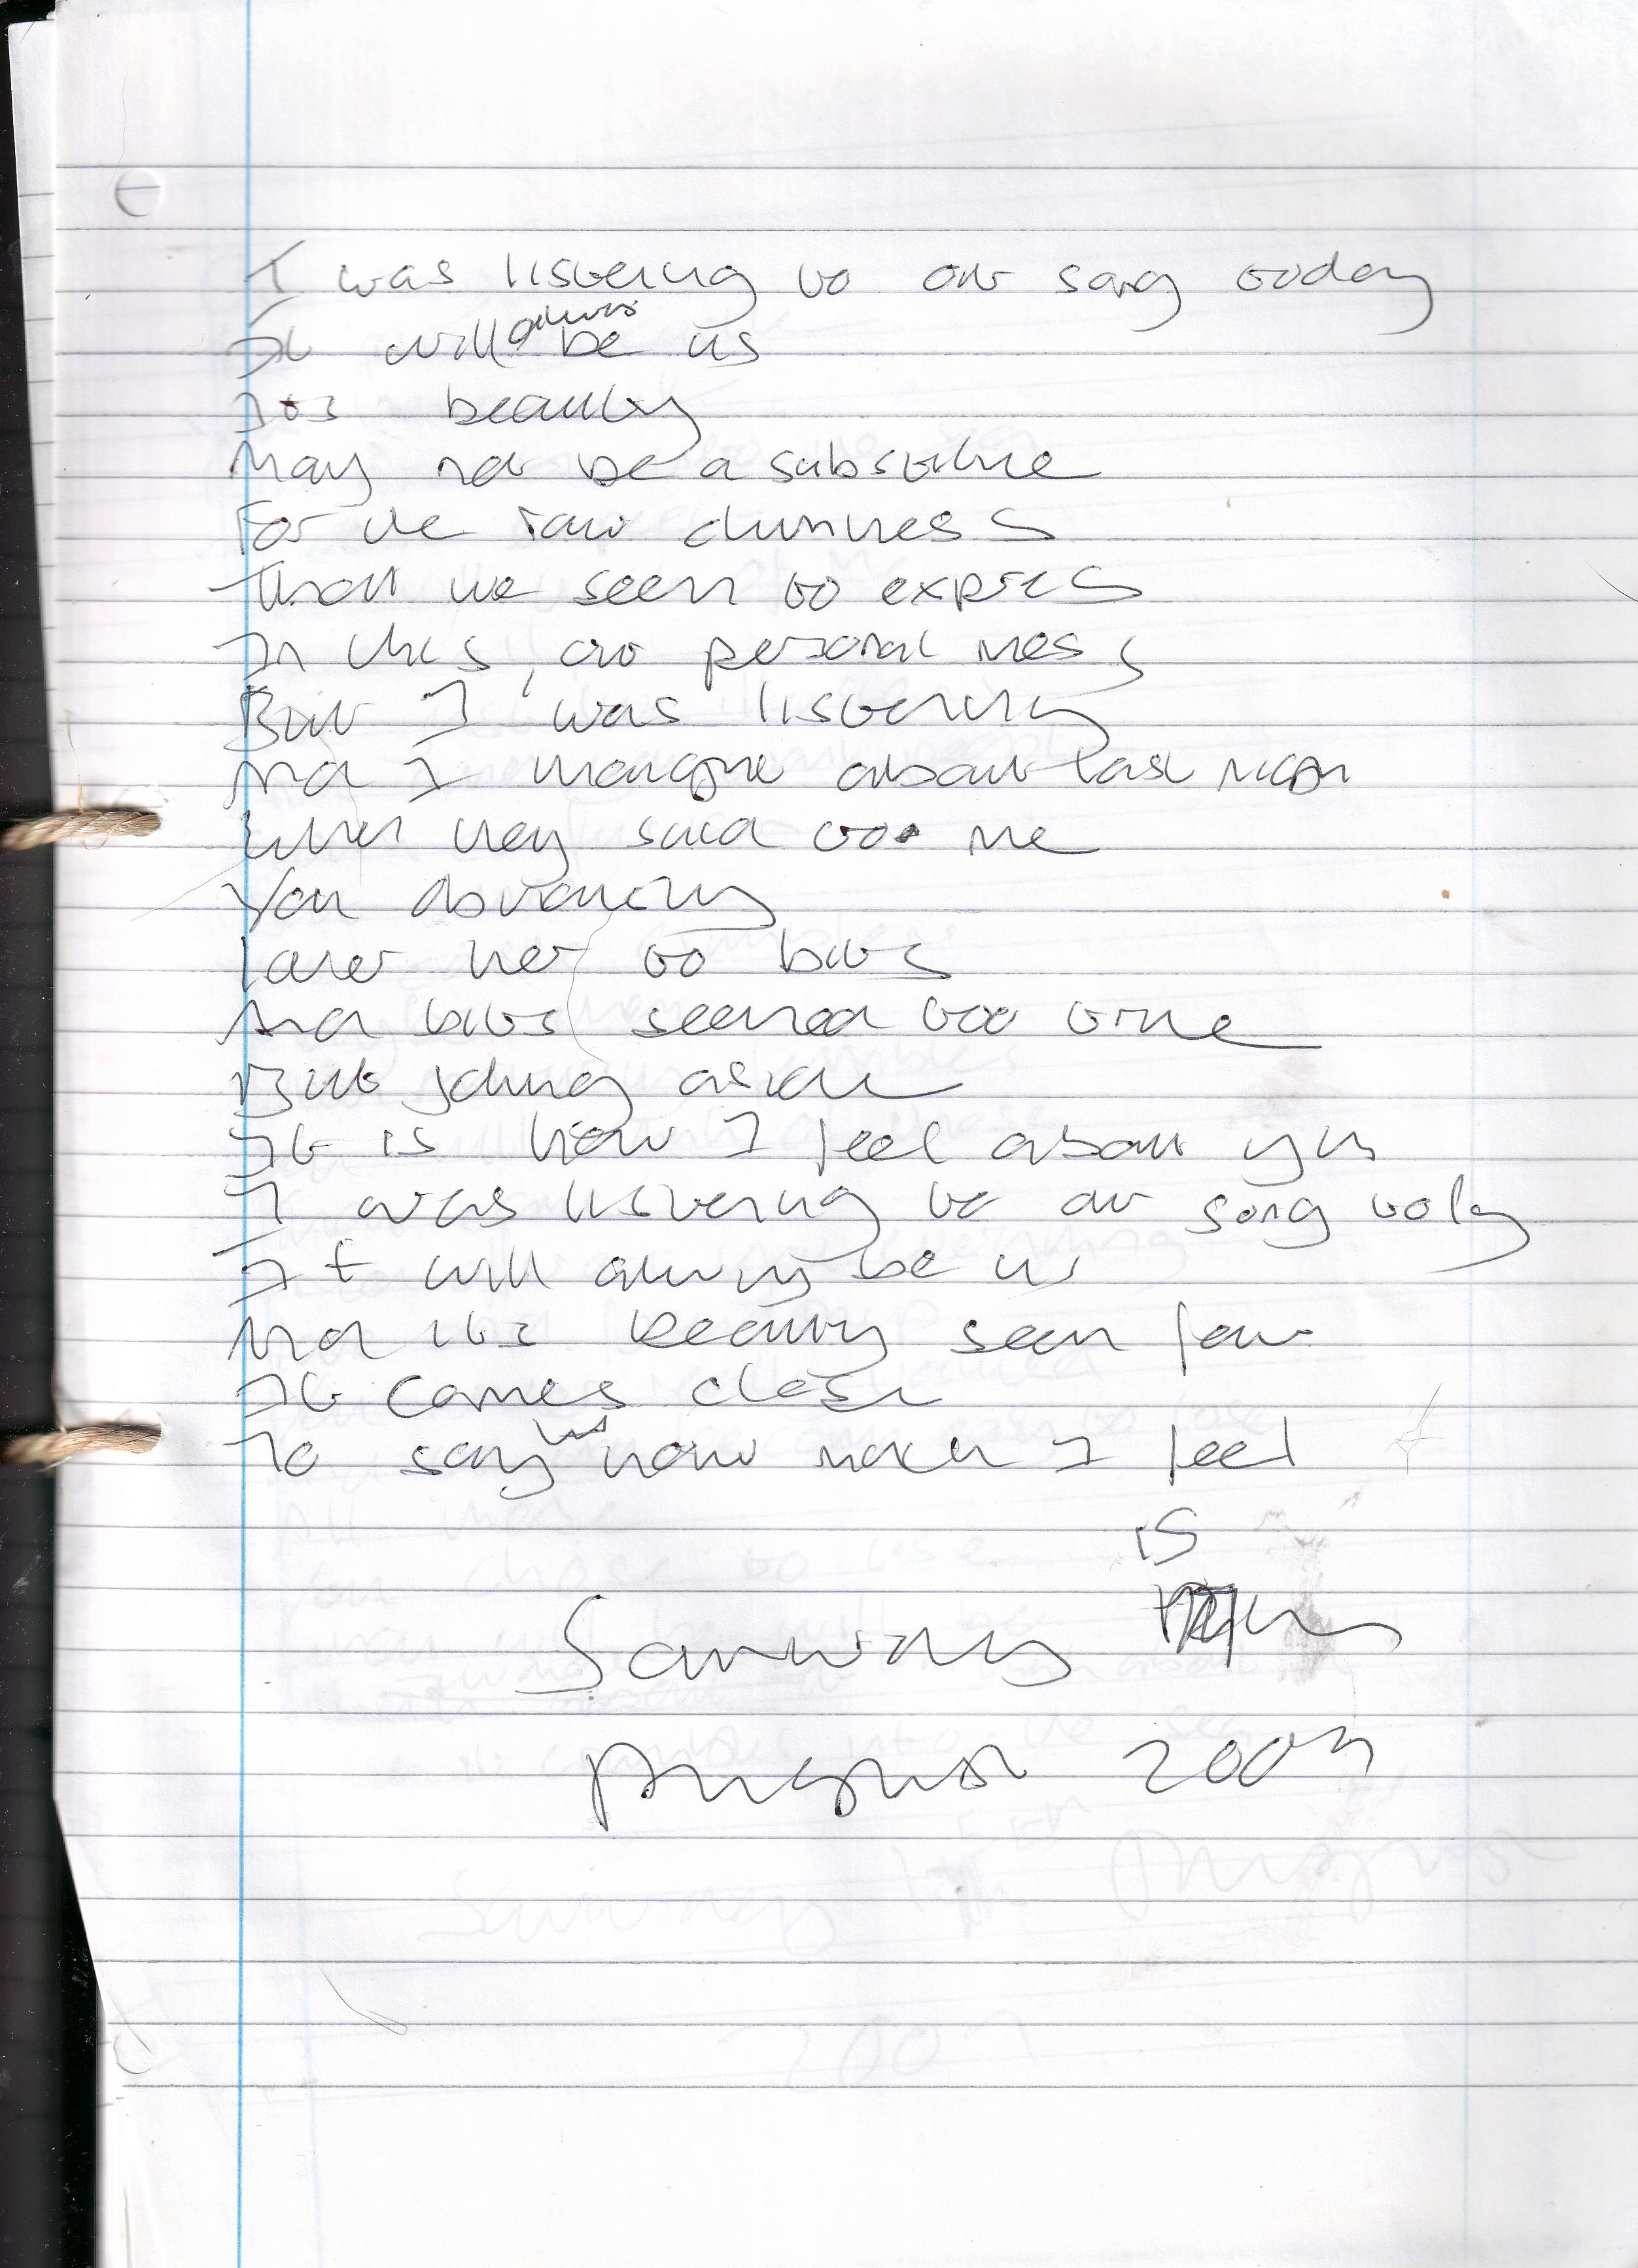 I was listening to our song today
It will always be us
Its beauty
May not be a substitute
For the raw dumness
That we seem to express
In this, our personal mess
But I was listening
And I imagine about last night
When they said to me
You obviously
love her to bits
And bits seemed too true
But joking aside
It is how I feel about you
I was listening to our song today
It will always be us
And its beauty seen few
It comes close
To say just how much I feel
is
Saturday
August 2004